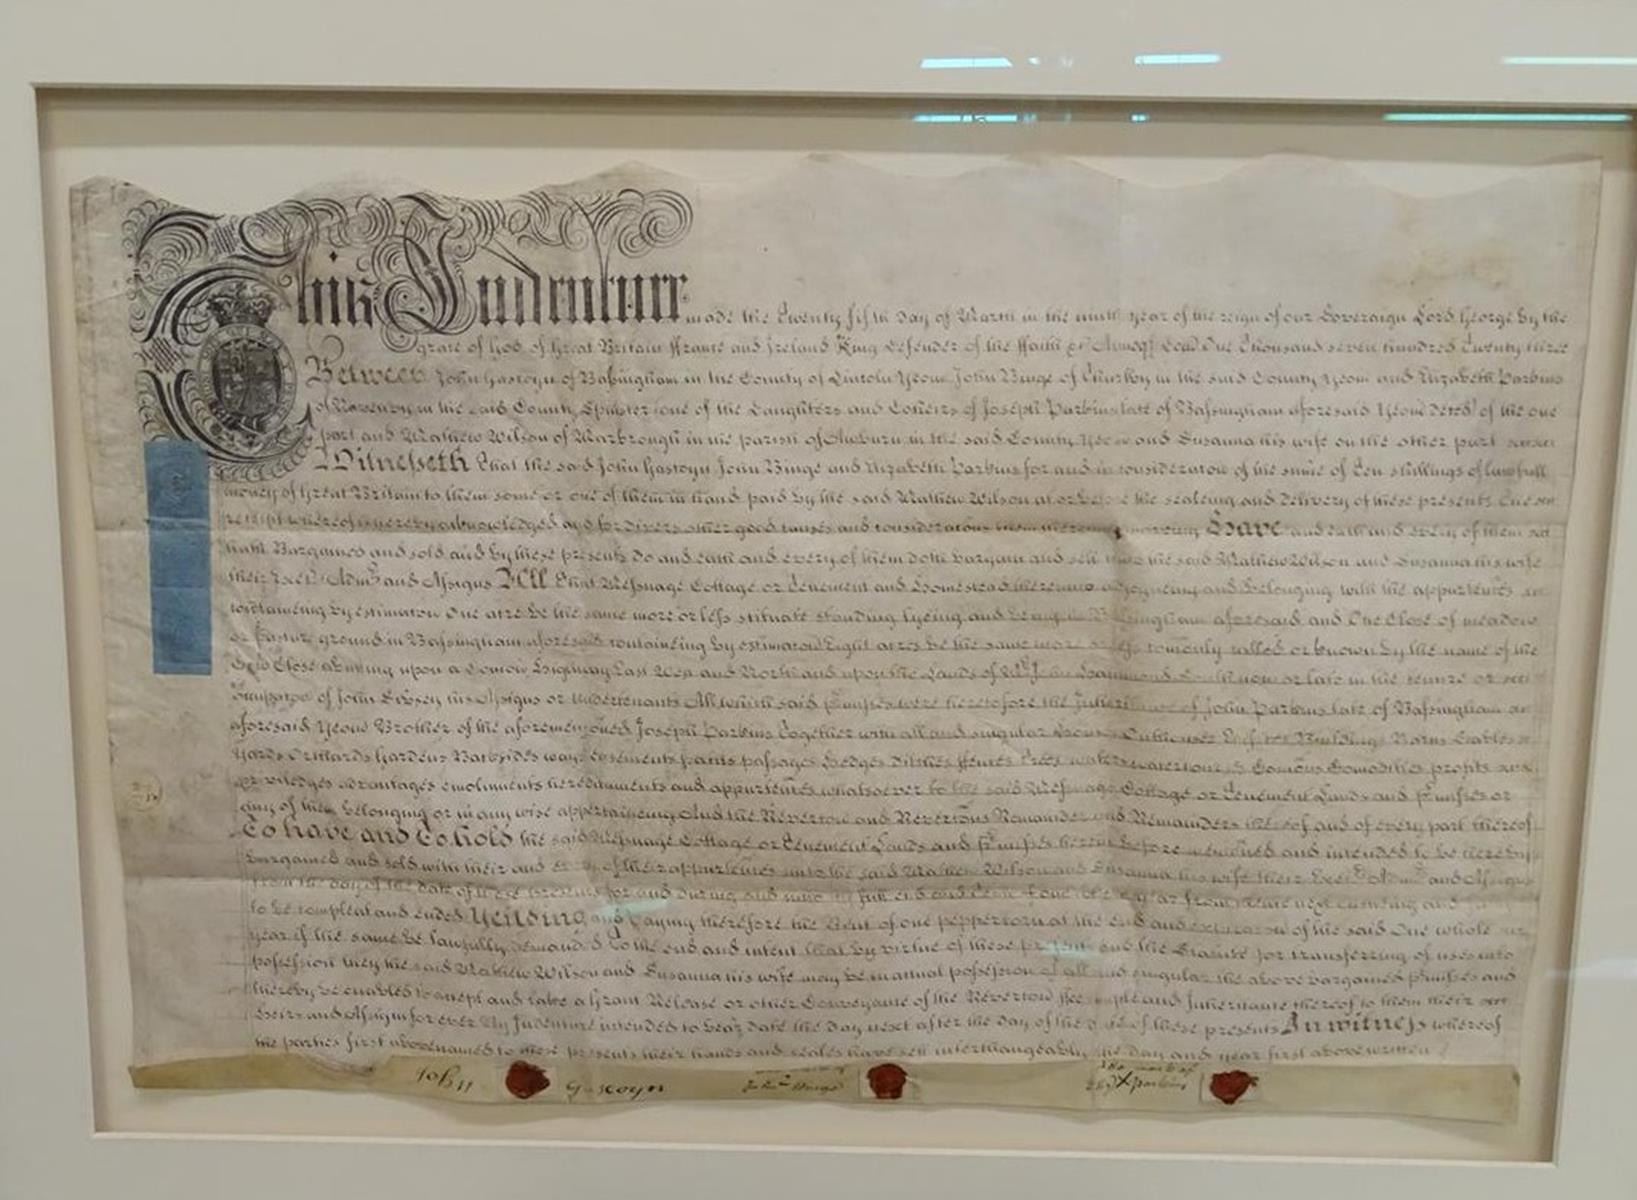 This Indenture made the Twenty fifth day of March in the ninth year of the reign of our Soveraign Lord George by the
grace of God of Great Britain ffrance and Ireland King Defender of the ffaith &c Annoq Dom One Thousand seven hundred Twenty three
Between John Gascoyn of Bassingham in the County of Lincoln Yeom John Binge of in the said County Yeom and Elizabeth Parkins
of Navenby in the said County Spinster one of the Daughters and Coheirs of Joseph Parkins late of Bassingham aforesaid Yeom deced of the one
part and Mathew Wilson of in the parish of in the said County Yeom and Susanna his wife on the other part
Witnesseth That the said John Gascoyn John Binge and Elizabeth Parkins for and in consideracon of the sume of Ten shillings of lawfull
money of Great Britain to them some or one of them in hand paid by the said Mathew Wilson at or before the sealeing and delivery of these presents
receipt whereof is hereby acknowledged and for divers other good causes and consideracons them thereunto moveing Have and each and every of them
hath Bargained and sold and by these presents do and each and every of them doth bargain and sell unto the said Mathew Wilson and Susanna his wife
their Exec Adm and Assigns All That Messuage Cottage or Tenement and Homestead thereunto adjoyneing and belonging with the appurtences
containeing by estimacon One acre be the same more or less scituate standing lyeing and being in Bassingham aforesaid and One Close of meadow
or Pasture ground in Bassingham aforesaid containeing by estimacon Eight acres be the same more or less comonly called or known by the name of the
Close abutting upon a Comon Highway East West and North and upon the Lands of South now or late in the tenure or
of John his Assigns or Undertenants All which said prmisses were heretofore the Inheritance of John Parkins late of Bassingham
aforesaid Yeom Brother of the aforemenconed Joseph Parkins Together with all and singular Houses Outhouses Edifices Buildings Barns Stables
Yards Orchards Gardens Backsides ways easements paths passages hedges ditches ffences trees waters watercourses Comons Comodities profits
priviledges advantages emoluments hereditaments and appurtences whatsoever to the said Messuage Cottage or Tenement Lands and prmisses or
any of them belonging or in any wise appertaineing And the Revercon and Revercons Remainder and Remainders thereof and of every part thereof
To have and To hold the said Messuage Cottage or Tenement Lands and prmisses herein before menconed and intended to be hereby
bargained and sold with their and every of their appurtences unto the said Mathew Wilson and Susanna his wife their Exec Adm and Assigns
from the day of the date of these presents for and during and unto the full end and Term of one whole year from thence next ensueing and
to be compleat and ended Yeilding and paying therefore the Rent of one peppercorn at the end and expiracon of the said One whole
year if the same be lawfully demanded To the end and intent that by virtue of these presents and the Statute for transferring of uses into
possession they the said Mathew Wilson and Susanna his wife may be in actual possession of all and singular the above bargained prmisses and
thereby be enabled to accept and take a Grant Release or other Conveyance of the Revercon ffee simple and Inheritance thereof to them their
heirs and Assigns for ever By Indenture intended to bear date the day next after the day of the date of these presents In witness whereof
the parties first abovenamed to these presents their hands and seales have sett interchangeably the day and year first above written
John Gascoyn John Binge The mark of
X Parkins